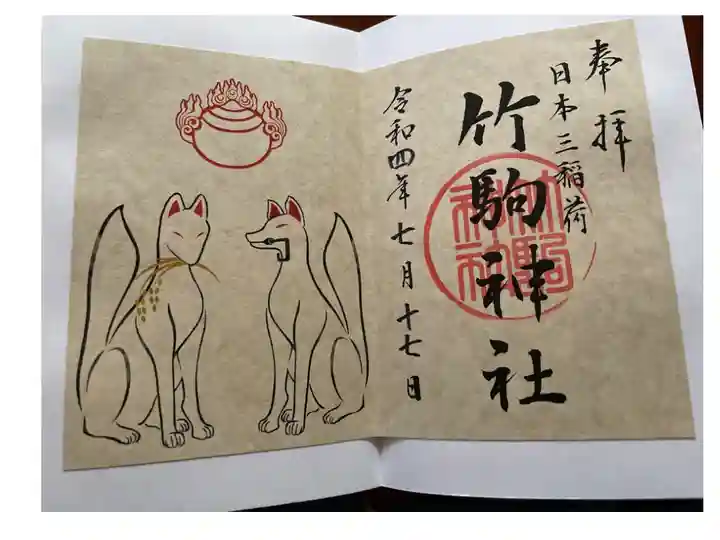 奉拝
日本三稲荷
竹駒神社
竹駒神社
令和四年七月十七日